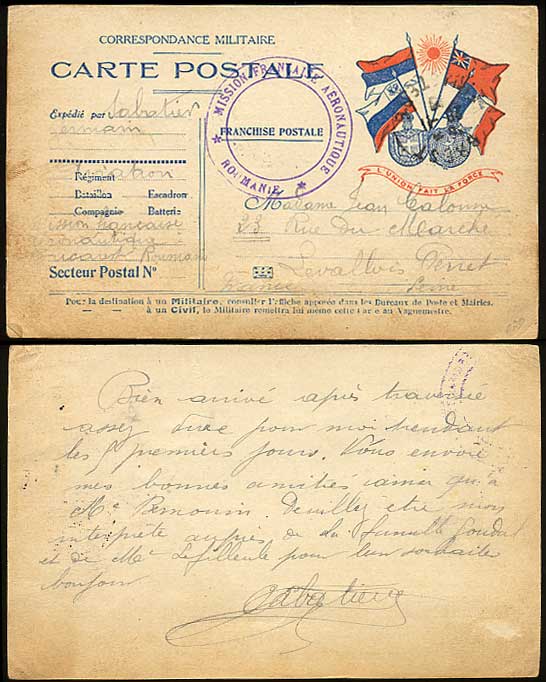 CORRESPONDANCE MILITAIRE
CARTE POSTALE
MISSION FRANÇAISE AÉRONAUTIQUE
FRANCHISE POSTALE
* ROUMANIE *
L'UNION FAIT LA FORCE
Expédié par Sabatier
Germain
Aviation
Régiment
Bataillon Escadron
Compagnie Batterie
Mission française
aéronautique
Roumanie
Secteur Postal N°
Madame Jean Calonne
23 Rue du Marché
Levallois Perret
France Seine
Pour la destination à un Militaire, consulter l'affiche apposée dans les Bureaux de Poste et Mairies.
— — à un Civil, le Militaire remettra lui même cette Carte au Vaguemestre.
Bien arrivé après traversée
assez dure pour moi pendant
les premiers jours. Vous envoie
mes bonnes amitiés ainsi qu'à
Mr Veuillez être mon
interprète auprès de la famille
et de Mr pour leur souhaiter
bonjour
Sabatier